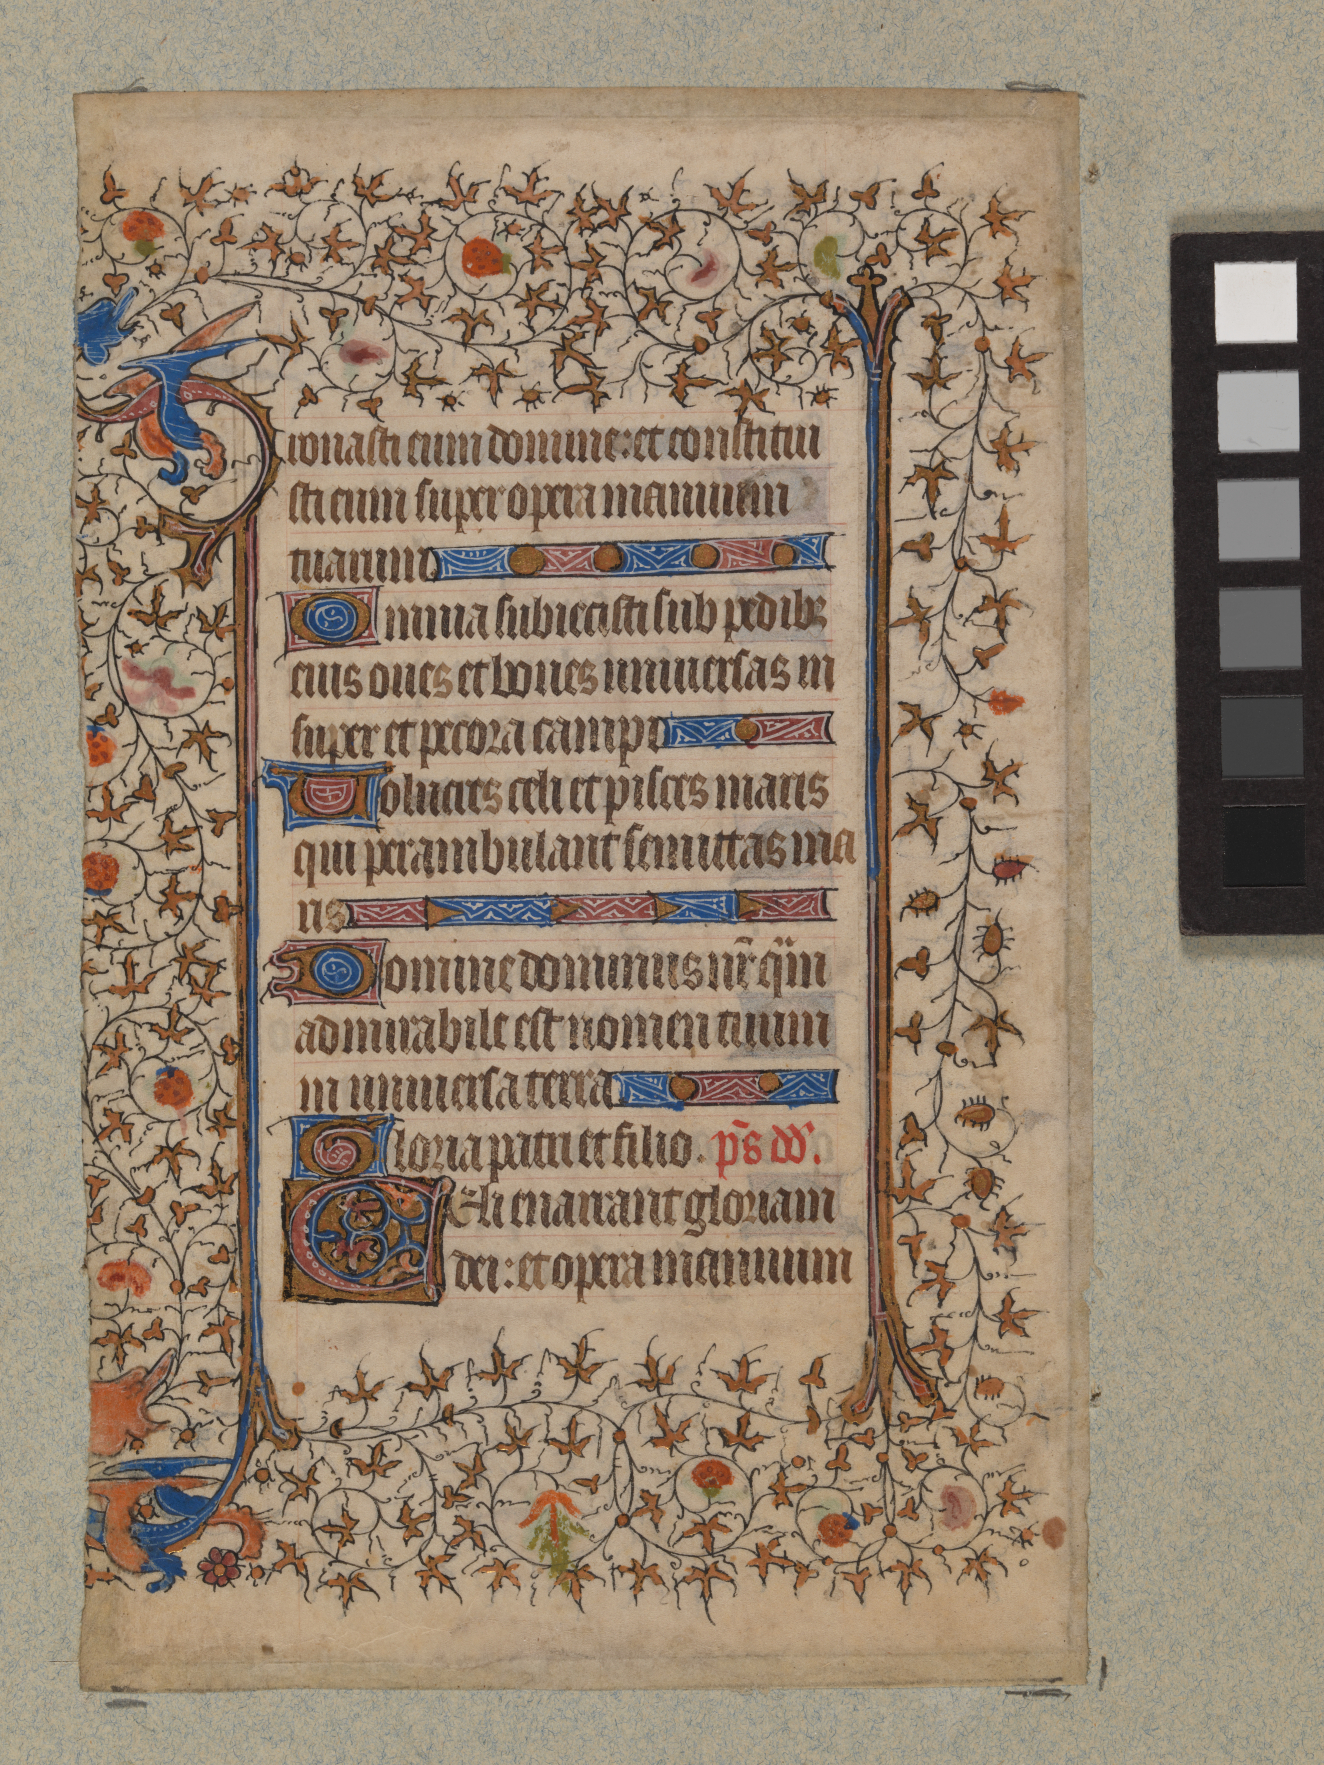 ronasti eum domine: et constitui
sti eum super opera manuum
tuarum
Omnia subiecisti sub pedibꝫ
eius oues et boues uniuersas in
super et pecora campi
Uolucres celi et pisces maris
qui perambulant semittas ma
ris
Domine dominus nr̄ qm̄
admirabile est nomen tuum
in uniuersa terra
Gloria patri et filio. p̄s dd̄.
Celi enarrant gloriam
dei: et opera manuum